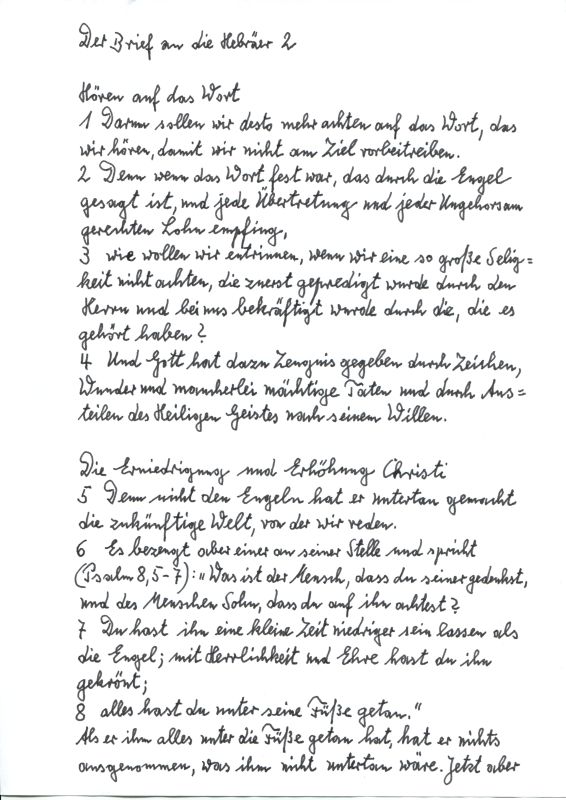 Der Brief an die Hebräer 2
Hören auf das Wort
1 Darum sollen wir desto mehr achten auf das Wort, das
wir hören, damit wir nicht am Ziel vorbeitreiben.
2 Denn wenn das Wort fest war, das durch die Engel
gesagt ist, und jede Übertretung und jeder Ungehorsam
gerechten Lohn empfing,
3 wie wollen wir entrinnen, wenn wir eine so große Selig=
keit nicht achten, die zuerst gepredigt wurde durch den
Herrn und bei uns bekräftigt wurde durch die, die es
gehört haben?
4 Und Gott hat dazu Zeugnis gegeben durch Zeichen,
Wunder und mancherlei mächtige Taten und durch Aus=
teilen des Heiligen Geistes nach seinem Willen.
Die Erniedrigung und Erhöhung Christi
5 Denn nicht den Engeln hat er untertan gemacht
die zukünftige Welt, von der wir reden.
6 Es bezeugt aber einer an seiner Stelle und spricht
(Psalm 8,5-7): „Was ist der Mensch, dass du seiner gedenkst,
und des Menschen Sohn, dass du auf ihn achtest?
7 Du hast ihn eine kleine Zeit niedriger sein lassen als
die Engel; mit Herrlichkeit und Ehre hast du ihn
gekrönt;
8 alles hast du unter seine Füße getan."
Als er ihm alles unter die Füße getan hat, hat er nichts
ausgenommen, was ihm nicht untertan wäre. Jetzt aber